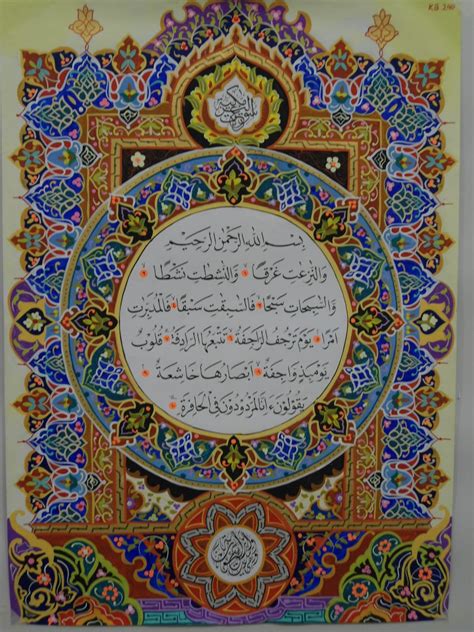 بِسْمِ اللهِ الرَّحْمٰنِ الرَّحِيْمِ
وَالنّٰزِعٰتِ غَرْقًا ۝ وَالنّٰشِطٰتِ نَشْطًا ۝
وَالسّٰبِحَاتِ سَبْحًا ۝ فَالسّٰبِقٰتِ سَبْقًا ۝ فَالْمُدَبِّرٰتِ
اَمْرًا ۝ يَوْمَ تَرْجُفُ الرَّاجِفَةُ ۝ تَتْبَعُهَا الرَّادِفَةُ ۝ قُلُوْبٌ
يَّوْمَئِذٍ وَّاجِفَةٌ ۝ اَبْصَارُهَا خَاشِعَةٌ ۝
يَقُوْلُوْنَ ءَاِنَّا لَمَرْدُوْدُوْنَ فِى الْحَافِرَةِ ۝